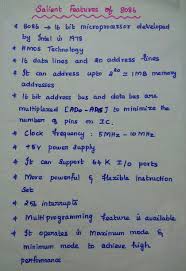 Salient Features of 8086
* 8086 → 16 bit microprocessor developed
by Intel in 1978
* HMOS Technology
* 16 data lines and 20 address lines
* It can address upto 2²⁰ = 1MB memory
addresses
* 16 bit address bus and data bus are
multiplexed [AD0 - AD15] to minimize the
number of pins on IC.
* Clock frequency : 5MHz - 10MHz
* +5V power supply
* It can support 64K I/O ports
* More powerful & flexible instruction
set
* 256 interrupts
* Multiprogramming feature is available
* It operates in Maximum mode &
minimum mode to achieve high
performance